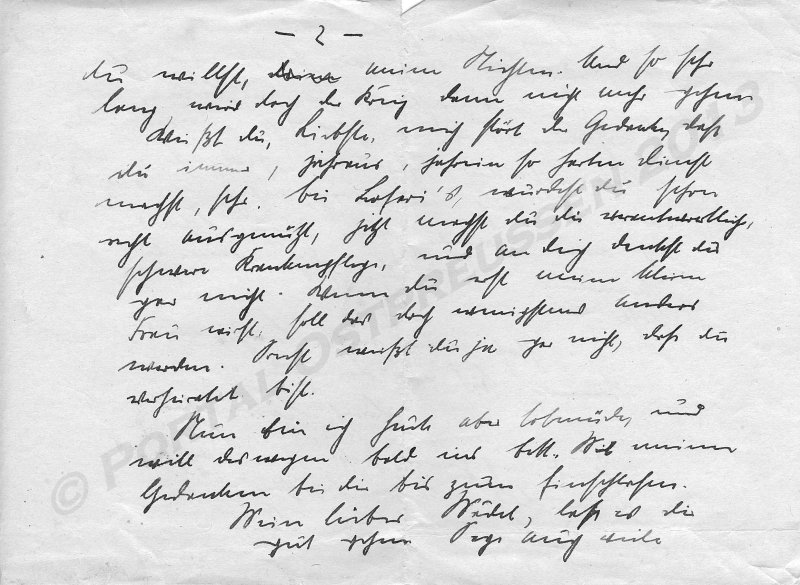 - 2 -
du willst, meine Nichten. Und so sehr
lang wird doch der Krieg dann nicht mehr gehen
Weißt du, Liebste, mich stört der Gedanke, daß
du immer, jahraus, jahrein so harten Dienst
machst, sehr. bei wurdest du schon
recht ausgenützt, jetzt machst du die verantwortlich,
schwere Krankenpflege, und an dich denkst du
gar nicht. Wenn du erst meine kleine
Frau wirst, soll das doch wenigstens anders
werden. Sonst weißt du ja gar nicht, daß du
verheiratet bist.
Nun bin ich heute aber todmüde, und
will deswegen bald ins bett. Mit meinen
Gedanken bei dir bis zum Einschlafen.
Mein lieber Mädel, laß es dir
gut gehen auch
© PORTAL-OSTPREUSSEN 2013